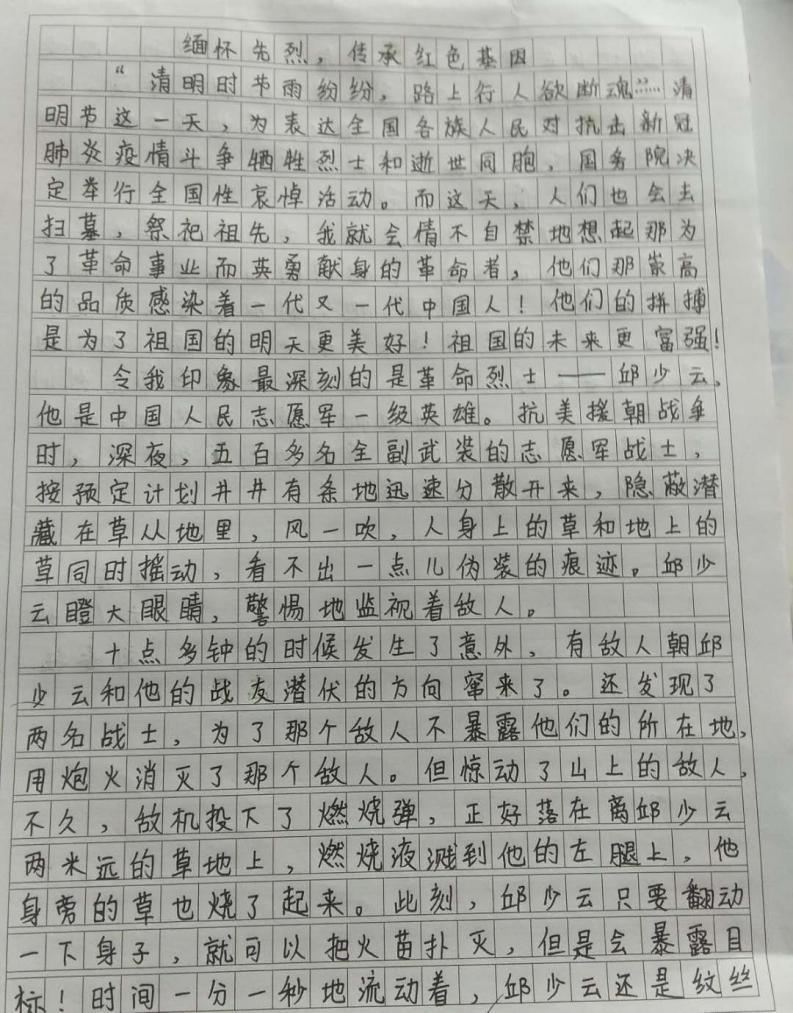 缅怀先烈，传承红色基因
“清明时节雨纷纷，路上行人欲断魂……”清
明节这一天，为表达全国各族人民对抗击新冠
肺炎疫情斗争牺牲烈士和逝世同胞，国务院决
定举行全国性哀悼活动。而这天，人们也会去
扫墓，祭祀祖先，我就会情不自禁地想起那为
了革命事业而英勇献身的革命者，他们那崇高
的品质感染着一代又一代中国人！他们的拼搏
是为了祖国的明天更美好！祖国的未来更富强！
令我印象最深刻的是革命烈士——邱少云，
他是中国人民志愿军一级英雄。抗美援朝战争
时，深夜，五百多名全副武装的志愿军战士，
按预定计划井井有条地迅速分散开来，隐蔽潜
藏在草从地里，风一吹，人身上的草和地上的
草同时摇动，看不出一点儿伪装的痕迹。邱少
云瞪大眼睛，警惕地监视着敌人。
十点多钟的时候发生了意外，有敌人朝邱
少云和他的战友潜伏的方向窜来了。还发现了
两名战士，为了那个敌人不暴露他们的所在地，
用炮火消灭了那个敌人。但惊动了山上的敌人，
不久，敌机投下了燃烧弹，正好落在离邱少云
两米远的草地上，燃烧液溅到他的左腿上，他
身旁的草也烧了起来。此刻，邱少云只要翻动
一下身子，就可以把火苗扑灭，但是会暴露目
标！时间一分一秒地流动着，邱少云还是纹丝